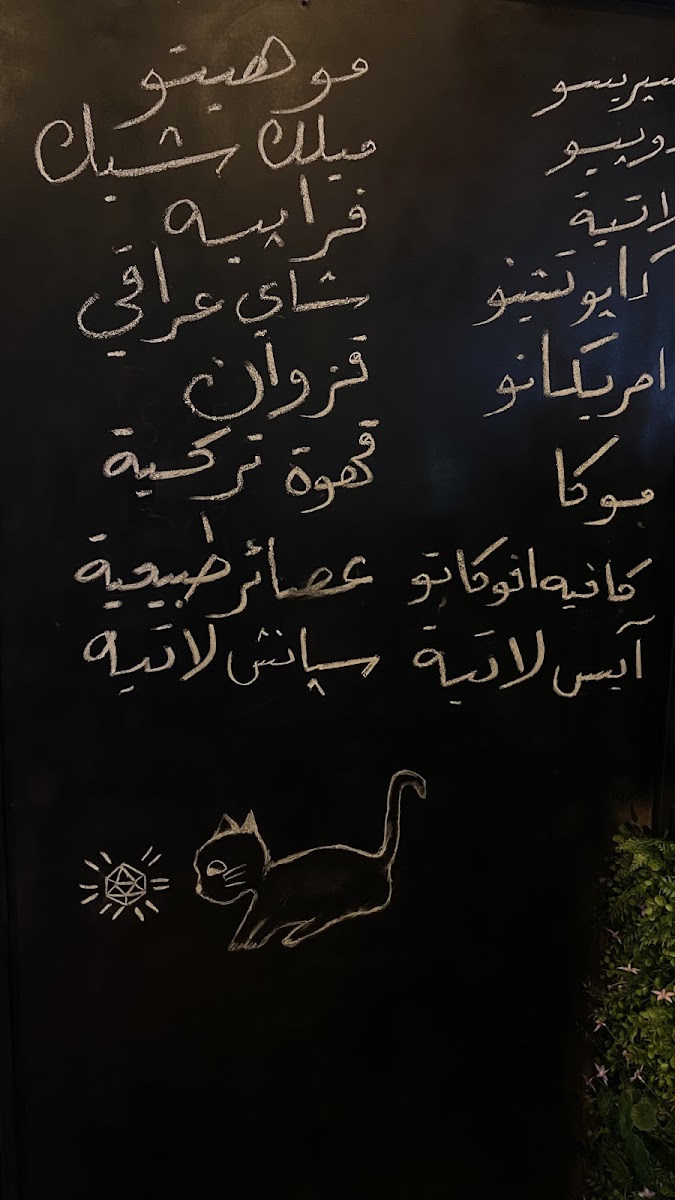 سبريسو
دوبيو
لاتية
كابوتشينو
امريكانو
موكا
كافيه افوكاتو
آيس لاتية
موهيتو
ميلك شيك
فراپيه
شاي عراقي
قزوان
قهوة تركية
عصائر طبيعية
سپانش لاتيه